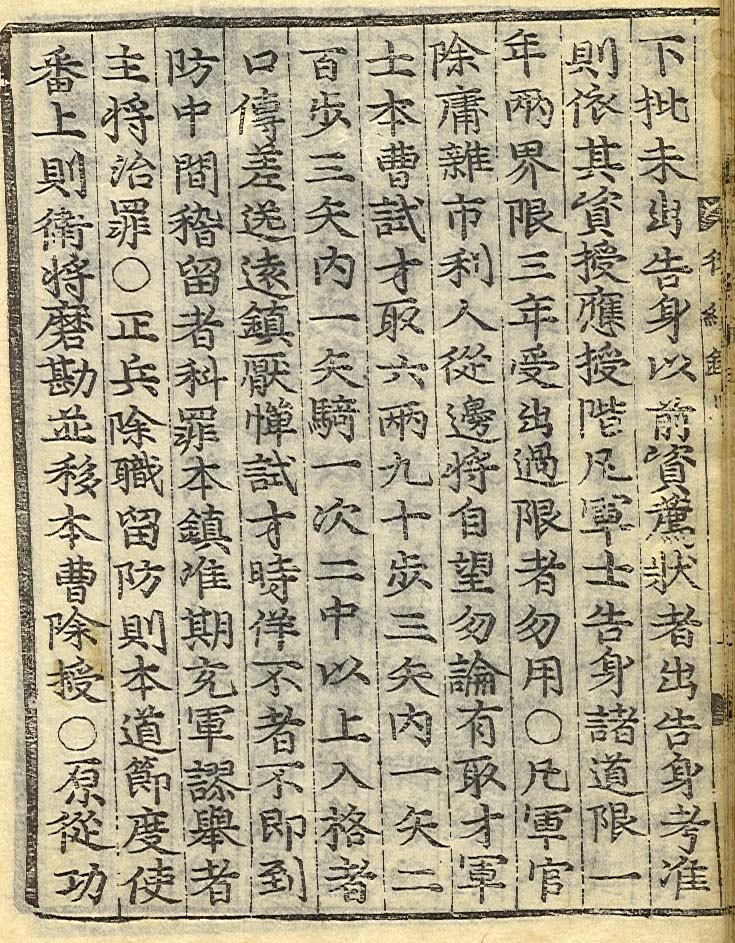 下批未出告身以前資薦狀者出告身考准
則依其資授應授階凡軍士告身諸道限一
年兩界限三年受出過限者勿用○凡軍官
除庸雜市利人從邊將自望勿論有取才軍
士本曹試才取六兩九十步三矢內一矢二
百步三矢內一矢騎一次二中以上入格者
口傳差送遠鎮厭憚試才時佯不者不即到
防中間稽留者科罪本鎮准期充軍謬舉者
主將治罪○正兵除職留防則本道節度使
番上則衛將磨勘並移本曹除授○原從功